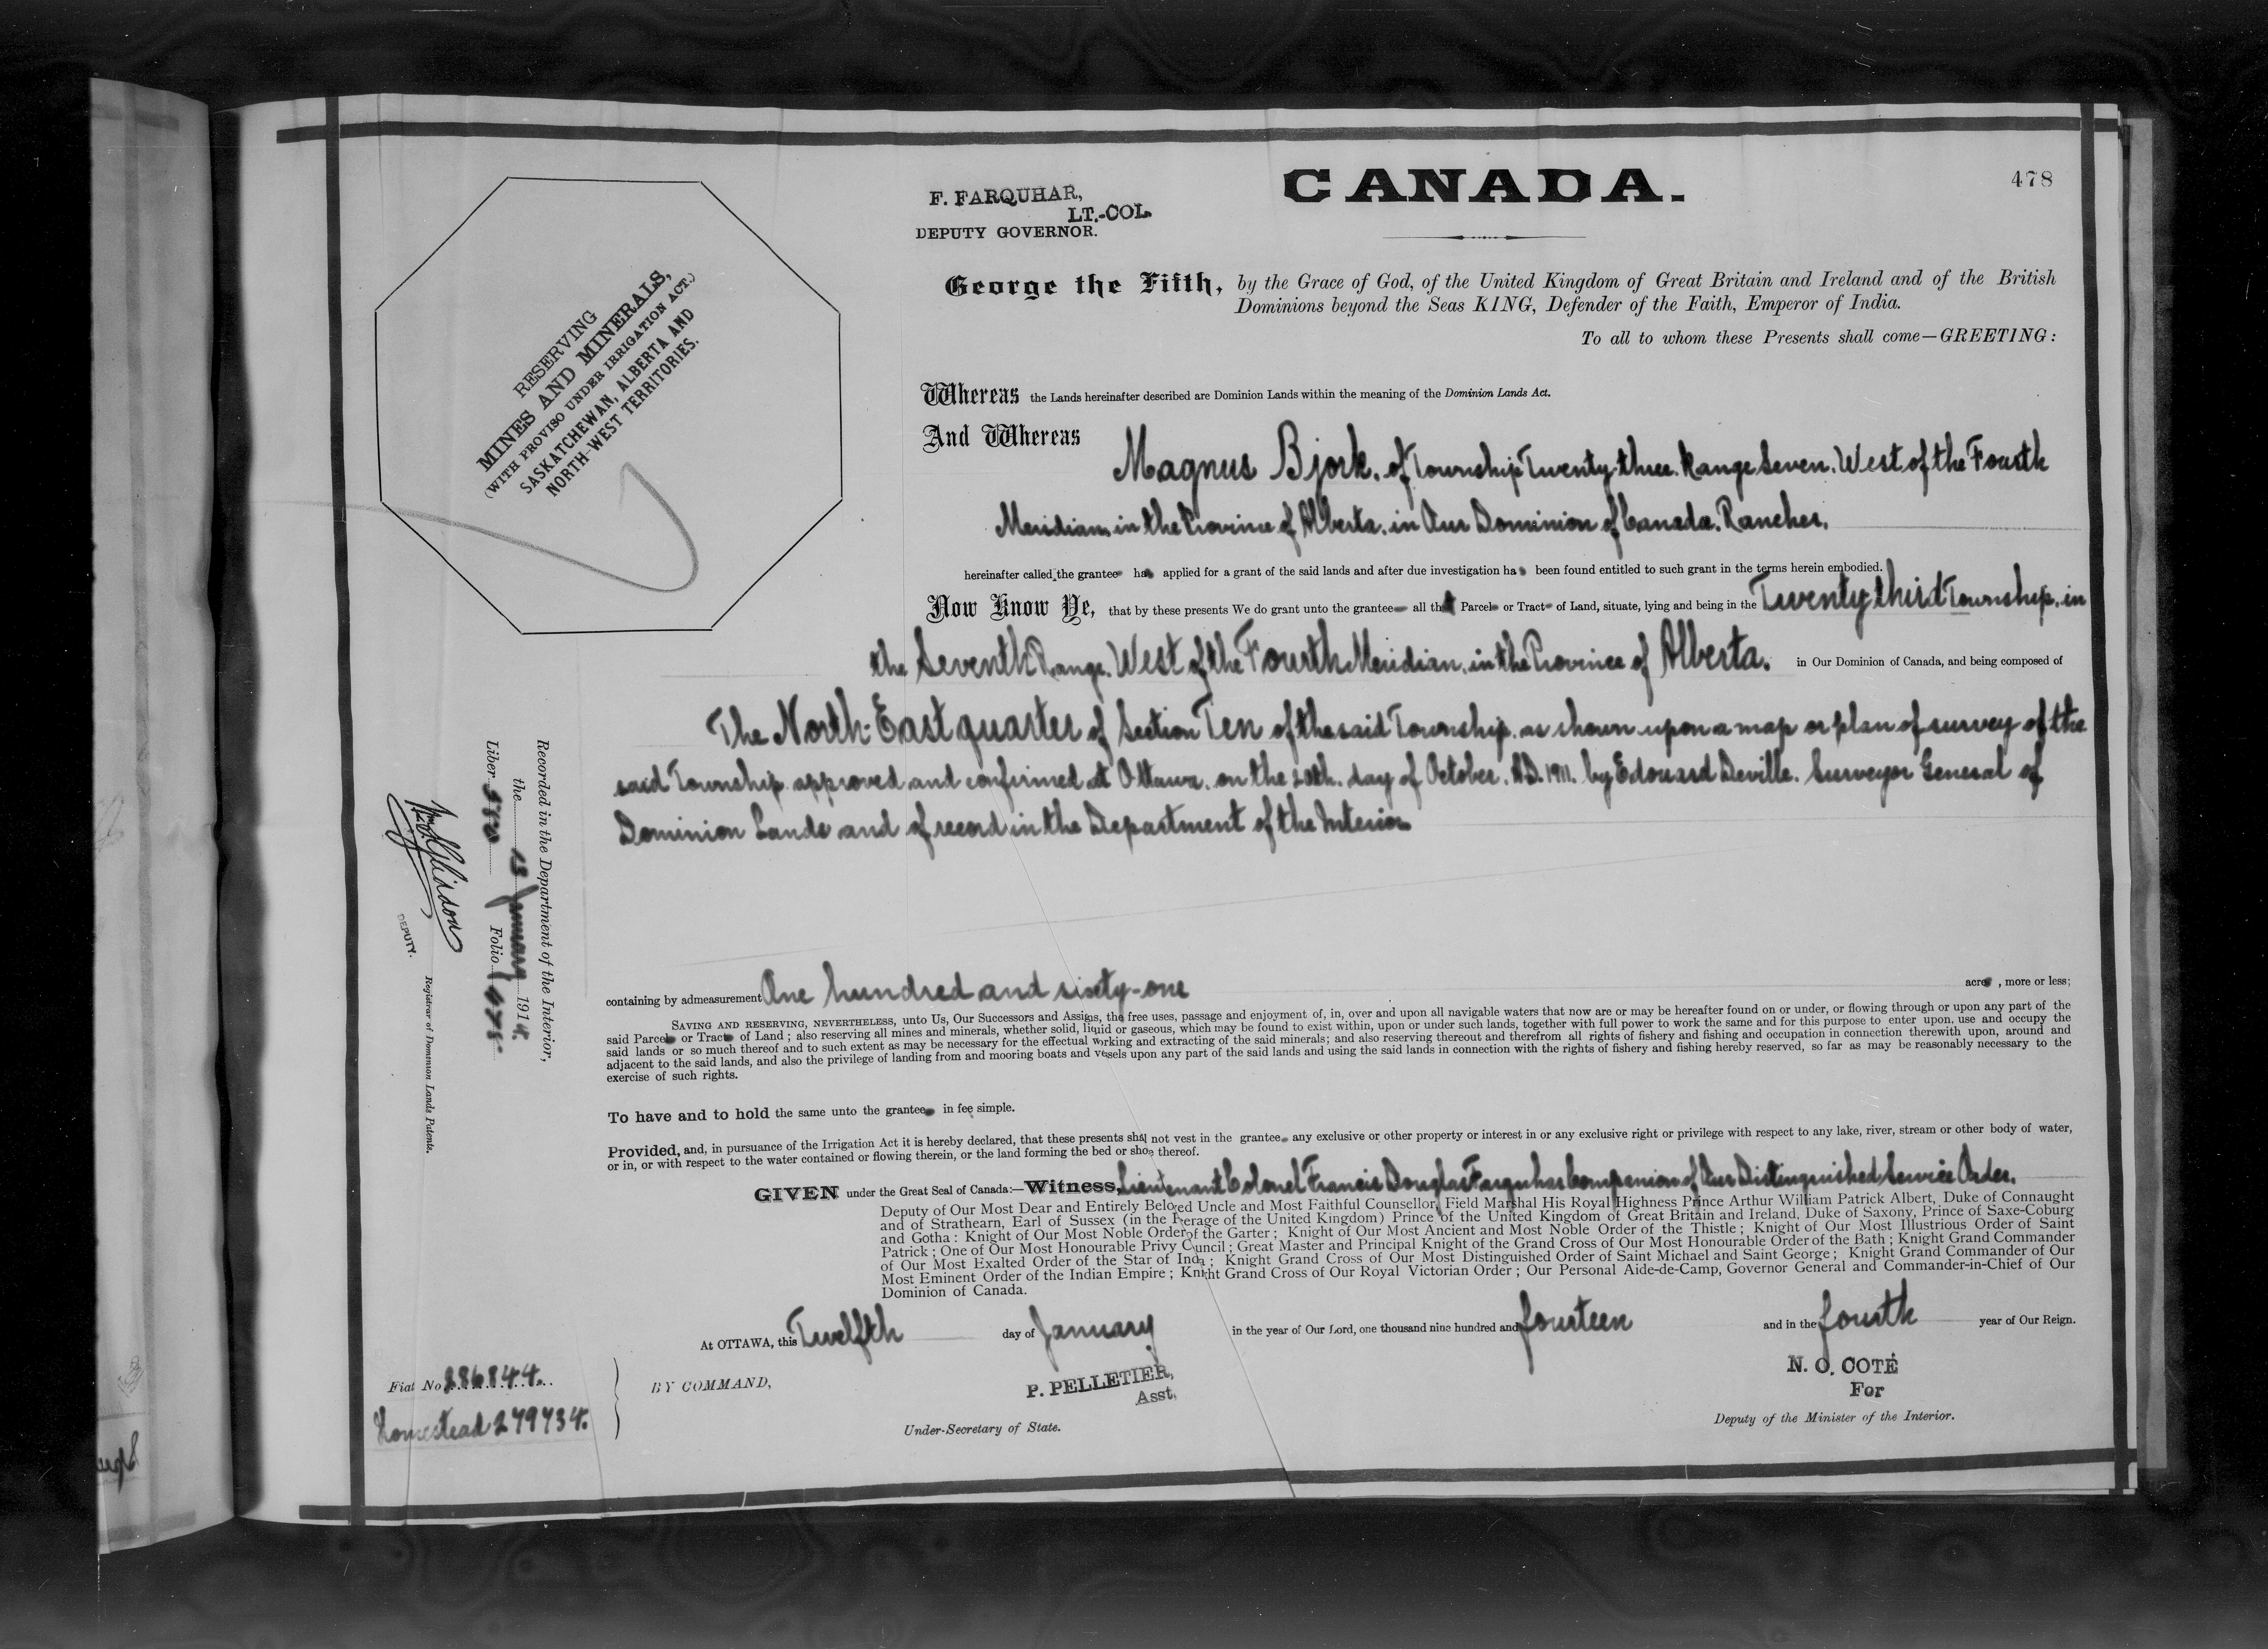 478
F. FARQUHAR,
LT.-COL.
DEPUTY GOVERNOR.
CANADA.
RESERVING
MINES AND MINERALS,
(WITH PROVISO UNDER IRRIGATION ACT.)
SASKATCHEWAN, ALBERTA AND
NORTH-WEST TERRITORIES.
George the Fifth, by the Grace of God, of the United Kingdom of Great Britain and Ireland and of the British
Dominions beyond the Seas KING, Defender of the Faith, Emperor of India.
To all to whom these Presents shall come—GREETING:
Whereas the Lands hereinafter described are Dominion Lands within the meaning of the Dominion Lands Act.
And Whereas Magnus Bjork, of Township Twenty-three, Range Seven, West of the Fourth
Meridian, in the Province of Alberta, in Our Dominion of Canada, Rancher,
hereinafter called the grantee has applied for a grant of the said lands and after due investigation has been found entitled to such grant in the terms herein embodied.
Now Know Ye, that by these presents We do grant unto the grantee all that Parcel or Tract of Land, situate, lying and being in the Twenty third Township, in
the Seventh Range, West of the Fourth Meridian, in the Province of Alberta, in Our Dominion of Canada, and being composed of
The North-East quarter of Section Ten of the said Township, as shown upon a map or plan of survey of the
said Township approved and confirmed at Ottawa, on the 20th. day of October, A.D. 1911. by Edouard Deville, Surveyor General of
Dominion Lands and of record in the Department of the Interior
containing by admeasurement One hundred and sixty-one acres, more or less;
SAVING AND RESERVING, NEVERTHELESS, unto Us, Our Successors and Assigns, the free uses, passage and enjoyment of, in, over and upon all navigable waters that now are or may be hereafter found on or under, or flowing through or upon any part of the
said Parcel or Tract of Land; also reserving all mines and minerals, whether solid, liquid or gaseous, which may be found to exist within, upon or under such lands, together with full power to work the same and for this purpose to enter upon, use and occupy the
said lands or so much thereof and to such extent as may be necessary for the effectual working and extracting of the said minerals; and also reserving thereout and therefrom all rights of fishery and fishing and occupation in connection therewith upon, around and
adjacent to the said lands, and also the privilege of landing from and mooring boats and vesels upon any part of the said lands and using the said lands in connection with the rights of fishery and fishing hereby reserved, so far as may be reasonably necessary to the
exercise of such rights.
To have and to hold the same unto the grantee in fee simple.
Provided, and, in pursuance of the Irrigation Act it is hereby declared, that these presents shall not vest in the grantee any exclusive or other property or interest in or any exclusive right or privilege with respect to any lake, river, stream or other body of water,
or in, or with respect to the water contained or flowing therein, or the land forming the bed or shore thereof.
GIVEN under the Great Seal of Canada:—Witness, Lieutenant Colonel Francis Douglas Farquhar Companion of Our Distinguished Service Order,
Deputy of Our Most Dear and Entirely Beloved Uncle and Most Faithful Counsellor, Field Marshal His Royal Highness Prince Arthur William Patrick Albert, Duke of Connaught
and of Strathearn, Earl of Sussex (in the Peerage of the United Kingdom) Prince of the United Kingdom of Great Britain and Ireland, Duke of Saxony, Prince of Saxe-Coburg
and Gotha: Knight of Our Most Noble Order of the Garter; Knight of Our Most Ancient and Most Noble Order of the Thistle; Knight of Our Most Illustrious Order of Saint
Patrick; One of Our Most Honourable Privy Council; Great Master and Principal Knight of the Grand Cross of Our Most Honourable Order of the Bath; Knight Grand Commander
of Our Most Exalted Order of the Star of India; Knight Grand Cross of Our Most Distinguished Order of Saint Michael and Saint George; Knight Grand Commander of Our
Most Eminent Order of the Indian Empire; Knight Grand Cross of Our Royal Victorian Order; Our Personal Aide-de-Camp, Governor General and Commander-in-Chief of Our
Dominion of Canada.
At OTTAWA, this Twelfth day of January in the year of Our Lord, one thousand nine hundred and fourteen and in the fourth year of Our Reign.
BY COMMAND,
P. PELLETIER,
Asst.
Under-Secretary of State.
N. O. COTÉ
For
Deputy of the Minister of the Interior.
Fiat No 286844.
Homestead 279734.
Recorded in the Department of the Interior,
the 13 January 1914.
Liber Folio 478
DEPUTY.
Registrar of Dominion Lands Patents.